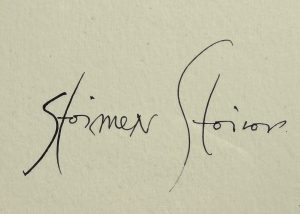 Stoimen Stoilov